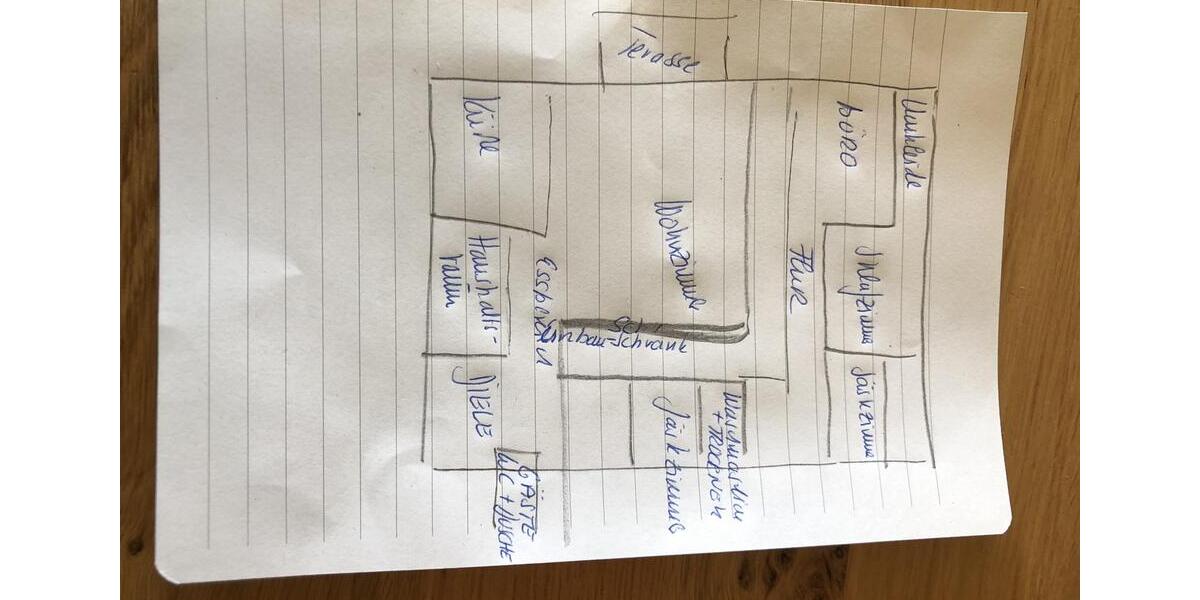 Terasse
Küche
Büro
Umkleide
Wohnzimmer
Flur
Schlafzimmer
Haushalts-
raum
Essbereich
Einbau-Schrank
DIELE
Gästezimmer
Waschmaschin
+ TROCKNER
Gästzimmer
GÄSTE
WC + DUSCHE